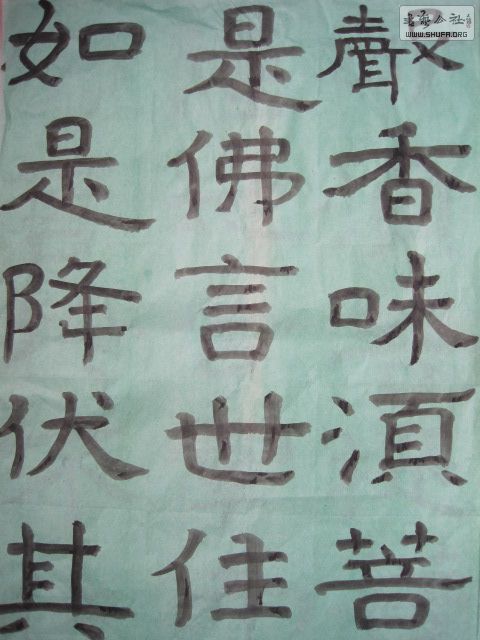 聲香味湏菩
是佛言世住
如是降伏其
WWW.SHUFA.ORG